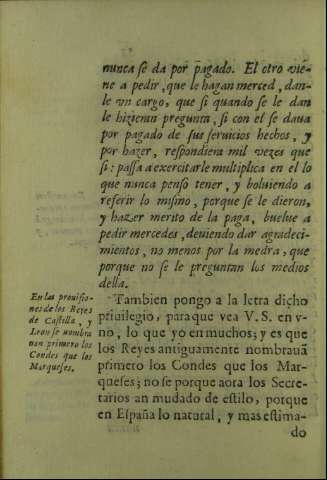 nunca se da por pagado. El otro vié-
ne a pedir, que le hagan merced, dan-
le vn cargo, que si quando se le dan
le hizieran pregunta, si con el se daua
por pagado de sus seruicios hechos, y
por hazer, respondiera mil vezes que
si: passa a exercitarle multiplica en el lo
que nunca penso tener, y boluiendo a
referir lo mismo, porque se le dieron,
y hazer merito de la paga, buelue a
pedir mercedes, deuiendo dar agradeci-
mientos, no menos por la medra, que
porque no se le preguntan los medios
della.
En las prouisio-
nes de los Reyes
de Castilla, y
Leon se nombra
uan primero los
Condes que los
Marqueses.
Tambien pongo a la letra dicho
priuilegio, paraque vea V. S. en v-
no, lo que yo en muchos; y es que
los Reyes antiguamente nombrauã
primero los Condes que los Mar-
queses; no se porque aora los Secre-
tarios an mudado de estilo, porque
en España lo natural, y mas estima-
do